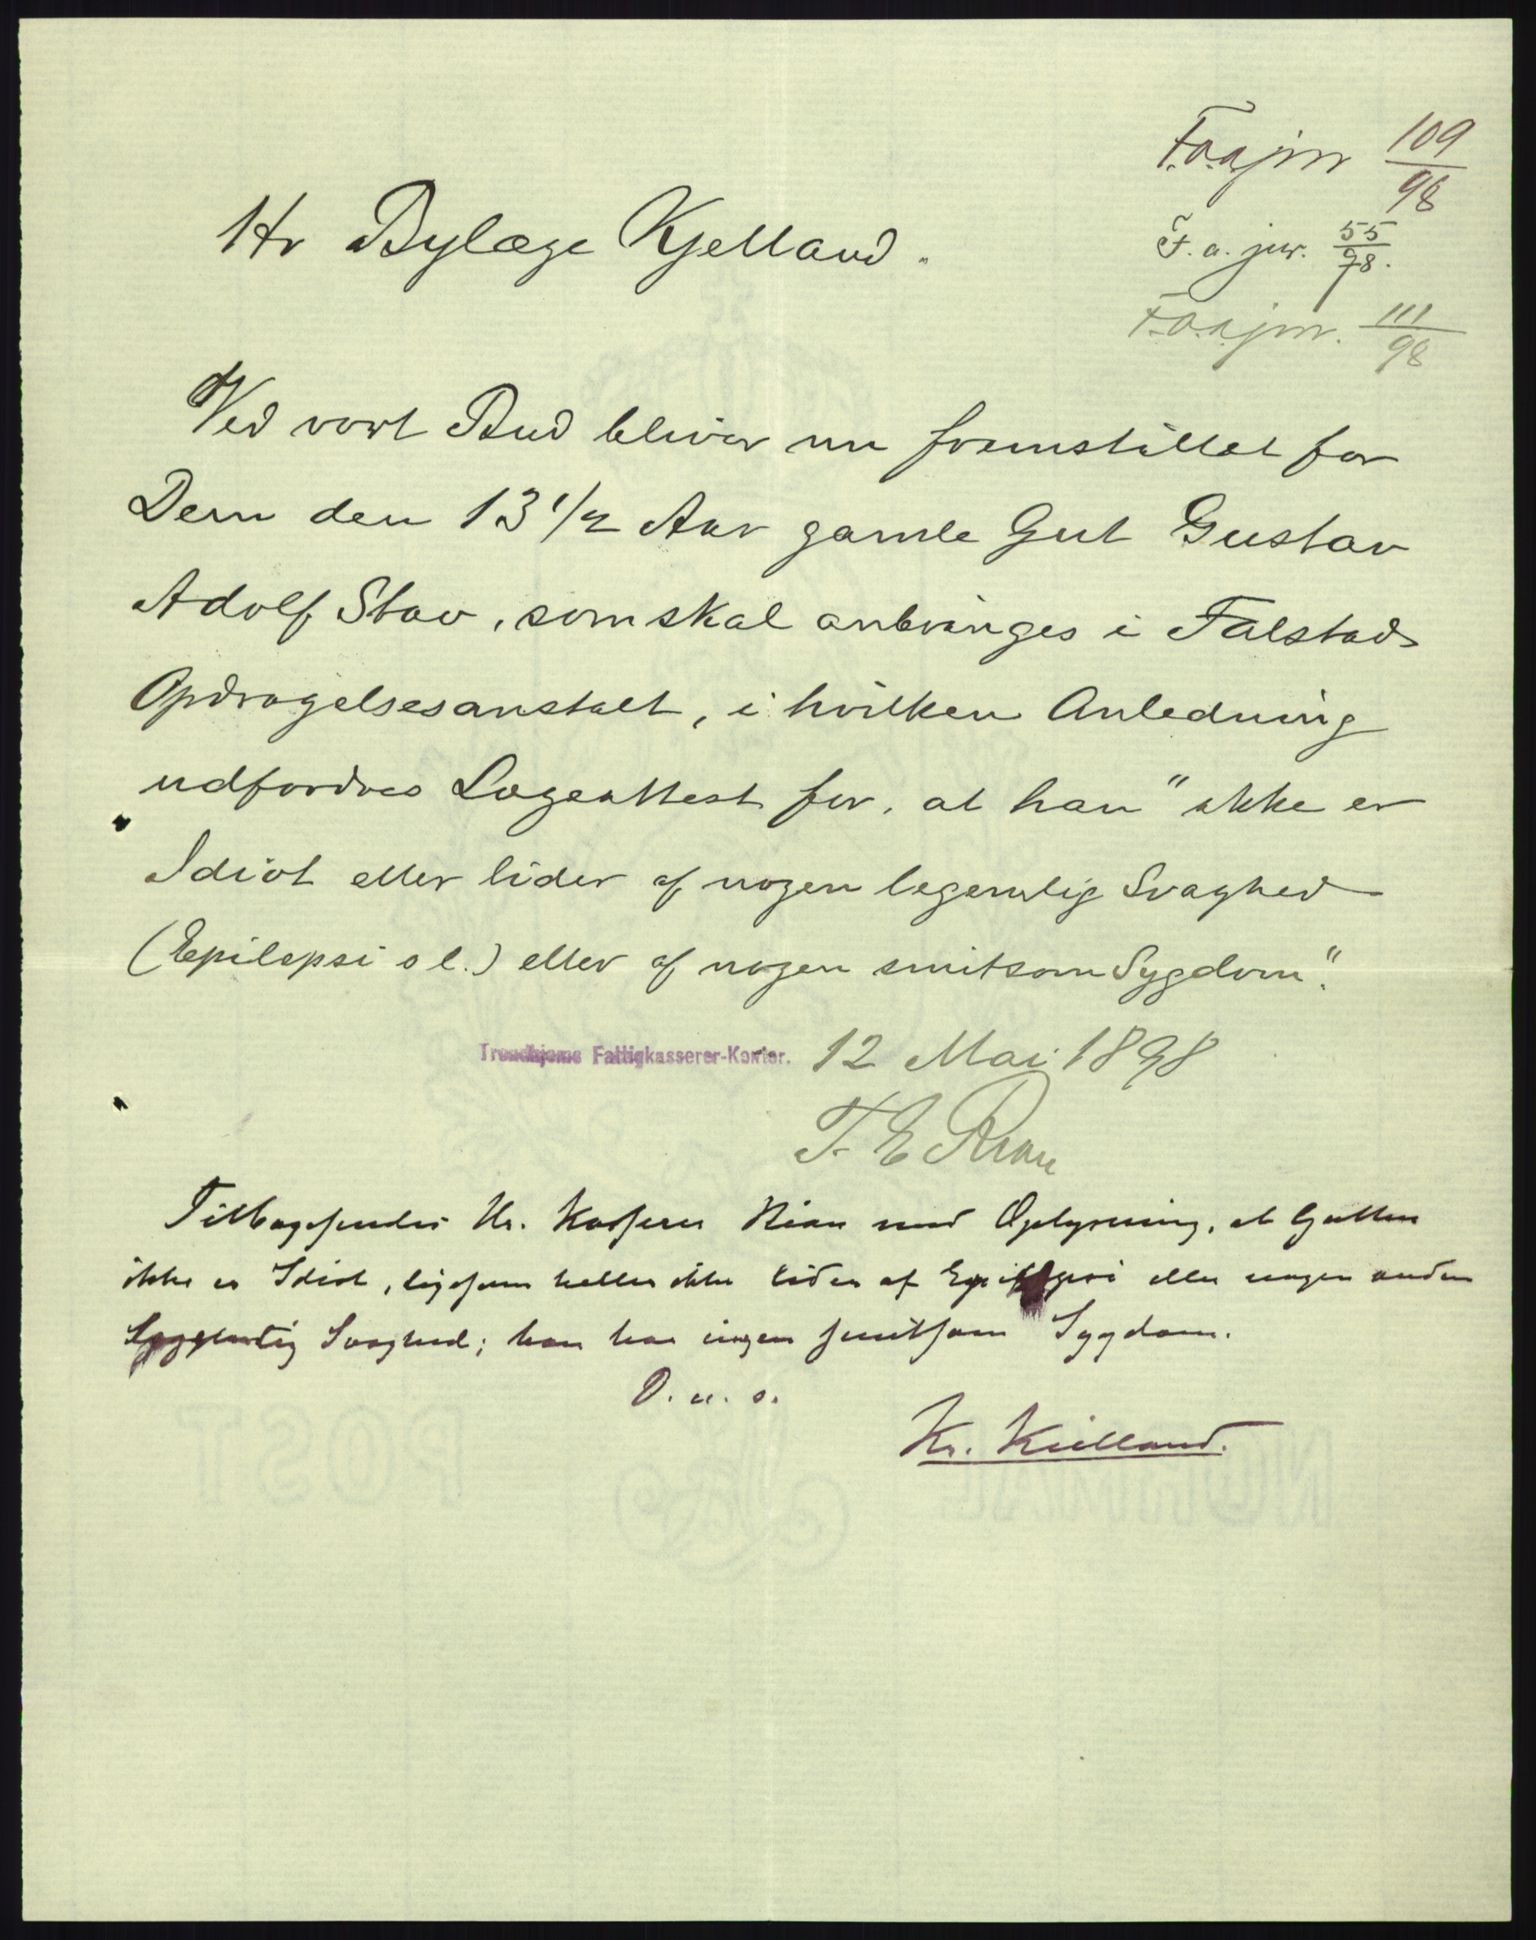 F.a.a.jnr 109/98
Hr Bylæge Kjelland.
F. a. jnr. 55/98.
F.a.a.jnr. 111/98
Ved vort Bud bliver nu fremstillet for
Dem den 13 1/2 Aar gamle Gut Gustav
Adolf Stav, som skal anbringes i Falstads
Opdragelsesanstalt, i hvilken Anledning
udfordres Lægeattest for, at han "ikke er
Idiot eller lider af nogen legemlig Svaghed
(Epilepsi o l.) eller af nogen smitsom Sygdom".
Trondhjems Fattigkasserer-Kontor. 12 Mai 1898
T. E Rian
Tilbagesendes Hr. Kasserer Rian med Oplysning, at Gutten
ikke er Idiot, ligesom heller ikke lider af Epilepsi eller nogen anden
legemlig Svaghed; han har ingen smitsom Sygdom.
D. u. s.
Kr. Kielland.
NORMAL POST